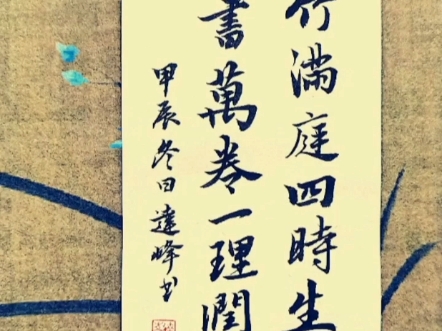 竹滿庭四時生
書萬卷一理潤
甲辰冬日達峰书